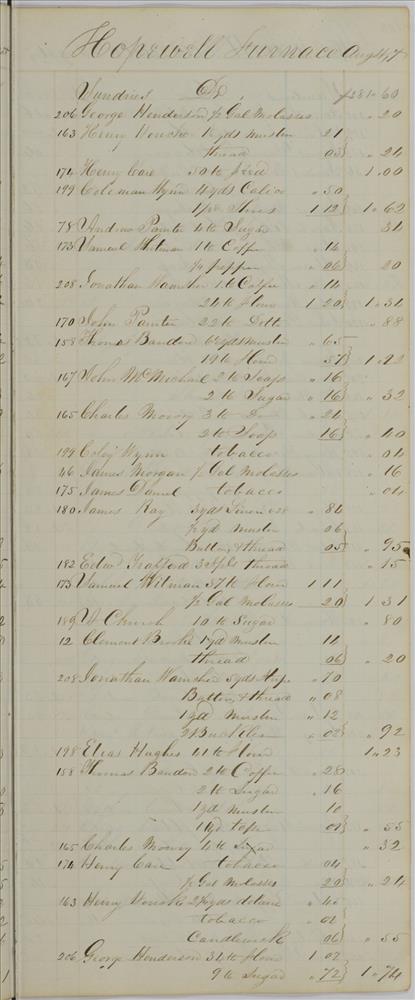 Hopewell Furnace Aug 4
Sundries Dr, 281.60
206 George Henderson ½ Gal Molasses " 20
163 Henry 1½ yds muslin 21
thread 03 " 24
174 Henry Care 50 lb feed 1.00
199 Coleman Wynn 4 yds Calico " 50
1 pr Shoes 1 12 1.62
78 Andrew Painter 4 lb Sugar 34
173 Samuel Hilman 1 lb Coffee " 14
¼ pepper " 06 20
208 Jonathan 1 lb Coffee " 14
24 lb flour 1 20 1.34
170 John Painter 22 lb Ditto " 88
158 Thomas Baudon muslin " 65
19 lb flour " 57 1.22
167 John McMichael 2 lb Soap " 16
2 lb Sugar " 16 " 32
165 Charles Moory 3 lb Do " 24
2 lb Soap 16 " 40
199 Coley Wynn tobacco " 04
46 James Morgan ½ Gal Molasses " 16
175 James Daniel tobacco " 04
180 James Ray 3 yds Linen " 84
½ yd Muslin 06
Button, & thread 05 " 95
182 3 thread " 15
173 Samuel Hilman 37 lb flour 1 11
½ Gal Molasses 20 1 31
189 Church 10 lb Sugar " 80
12 Clement Brooke 1 yd Muslin 14
thread 06 " 20
208 Jonathan 5 yds " 70
Button, & thread " 08
1 yd Muslin " 12
2 Buckles " 02 " 92
198 Elias Hughes 41 lb flour 1.23
158 Thomas Baudon 2 lb Coffee " 28
2 lb Sugar " 16
1 yd muslin 10
1 yd tape 01 " 55
165 Charles Moory 4 lb Sugar " 32
174 Henry Care tobacco 04
½ Gal Molasses 20 " 24
163 Henry 2 yds delaine "
tobacco "
Candlewick 06 " 55
206 George Henderson 34 lb flour 1 02
9 lb Sugar " 72 1.74